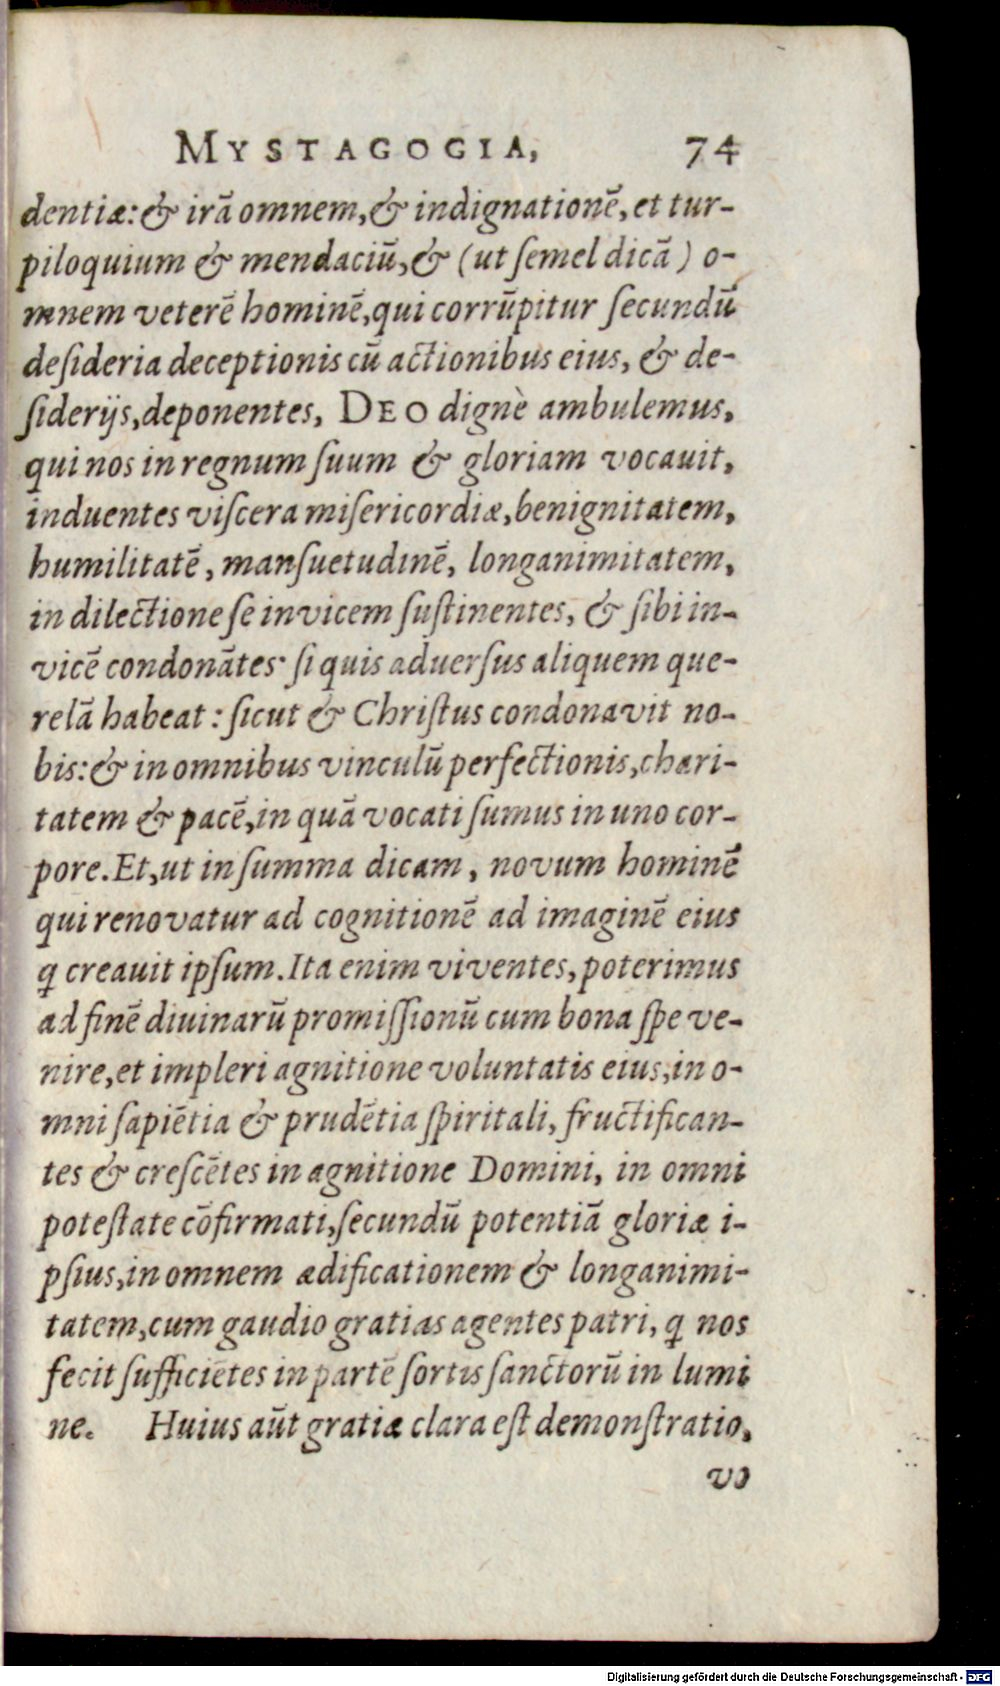 MYSTAGOGIA, 74
dentiæ: & irā omnem, & indignationē, et tur-
piloquium & mendaciū, & (ut ſemel dicā) o-
mnem veterē hominē, qui corrūpitur ſecundū
deſideria deceptionis cū actionibus eius, & de-
ſiderijs, deponentes, DEO dignè ambulemus,
qui nos in regnum ſuum & gloriam vocauit,
induentes viſcera miſericordiæ, benignitatem,
humilitatē, manſuetudinē, longanimitatem,
in dilectione ſe invicem ſuſtinentes, & ſibi in-
vicē condonātes· ſi quis aduerſus aliquem que-
relā habeat: ſicut & Chriſtus condonavit no-
bis: & in omnibus vinculū perfectionis, chari-
tatem & pacē, in quā vocati ſumus in uno cor-
pore. Et, ut in ſumma dicam, novum hominē
qui renovatur ad cognitionē ad imaginē eius
q̃ creauit ipſum. Ita enim viventes, poterimus
ad finē diuinarū promiſſionū cum bona ſpe ve-
nire, et impleri agnitione voluntatis eius, in o-
mni ſapiētia & prudētia ſpiritali, fructifican-
tes & creſcētes in agnitione Domini, in omni
poteſtate cōfirmati, ſecundū potentiā gloriæ i-
pſius, in omnem ædificationem & longanimi-
tatem, cum gaudio gratias agentes patri, q̃ nos
fecit ſufficiētes in partē ſortis ſanctorū in lumi
ne. Huius aūt gratiæ clara eſt demonſtratio,
vo
Digitalisierung gefördert durch die Deutsche Forschungsgemeinschaft - DFG